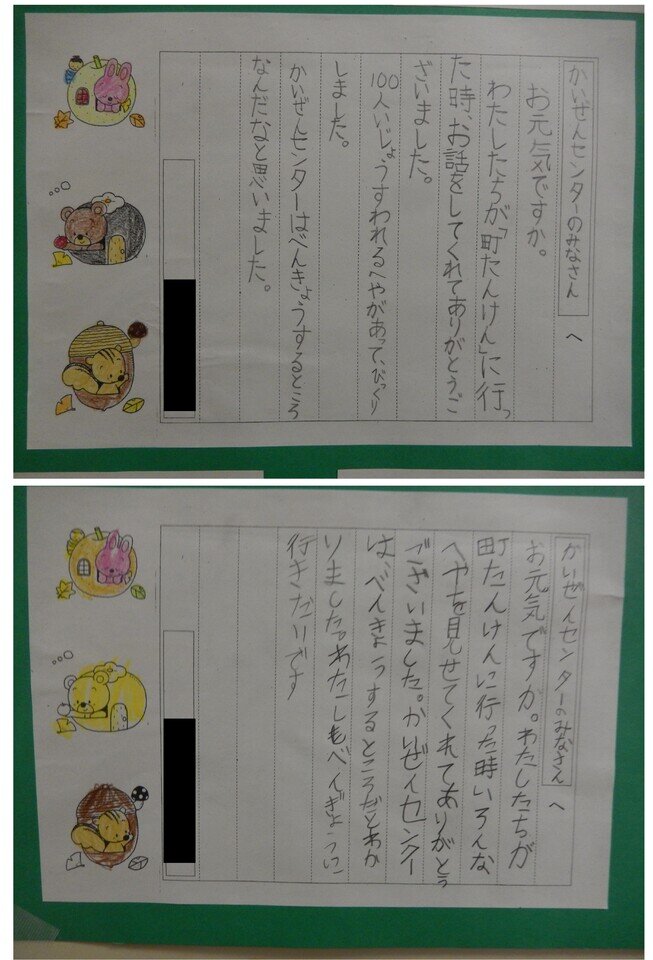 かいぜんセンターのみなさん へ
お元気ですか。
わたしたちが「町たんけん」に行っ
た時、お話をしてくれてありがとうご
ざいました。
100人いじょうすわれるへやがあって、びっくり
しました。
かいぜんセンターはべんきょうするところ
なんだなと思いました。
かいぜんセンターのみなさん へ
お元気ですか。わたしたちが
町たんけんに行った時いろんな
へやを見せてくれてありがとう
ございました。かいぜんセンター
は、べんきょうするところだとわか
りました。わたしもべんぎょうしに
行きたいです